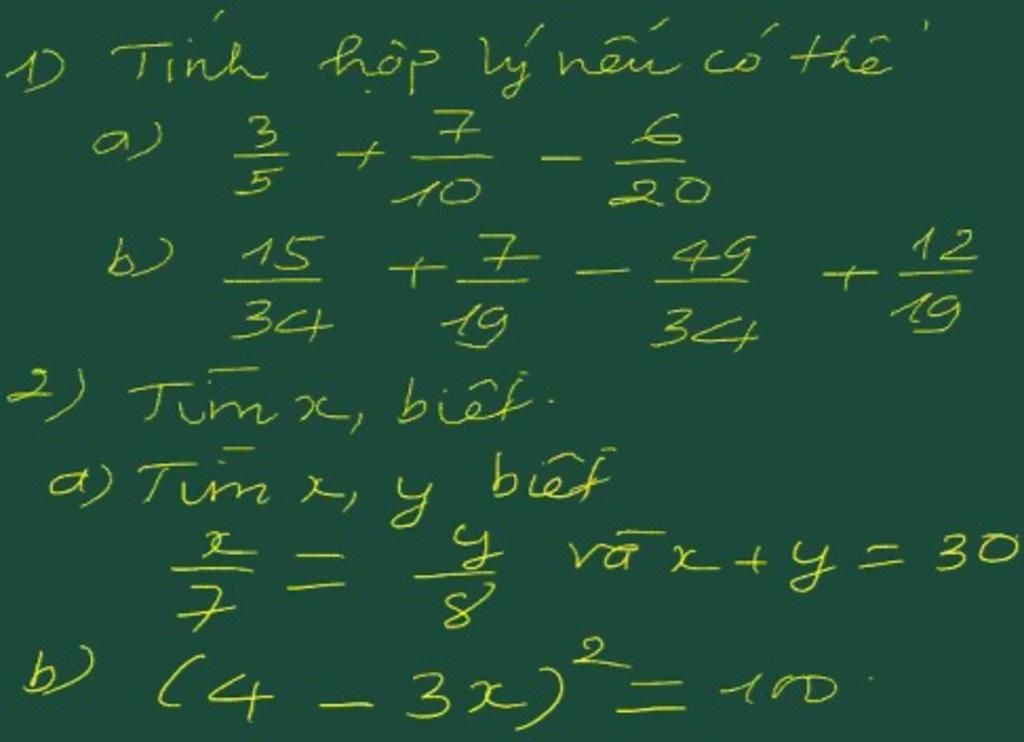 1) Tính hợp lý nếu có thể
a) 3/5 + 7/10 - 6/20
b) 15/34 + 7/19 - 49/34 + 12/19
2) Tìm x, biết.
a) Tìm x, y biết
x/7 = y/8 và x + y = 30
b) (4 - 3x)² = 100